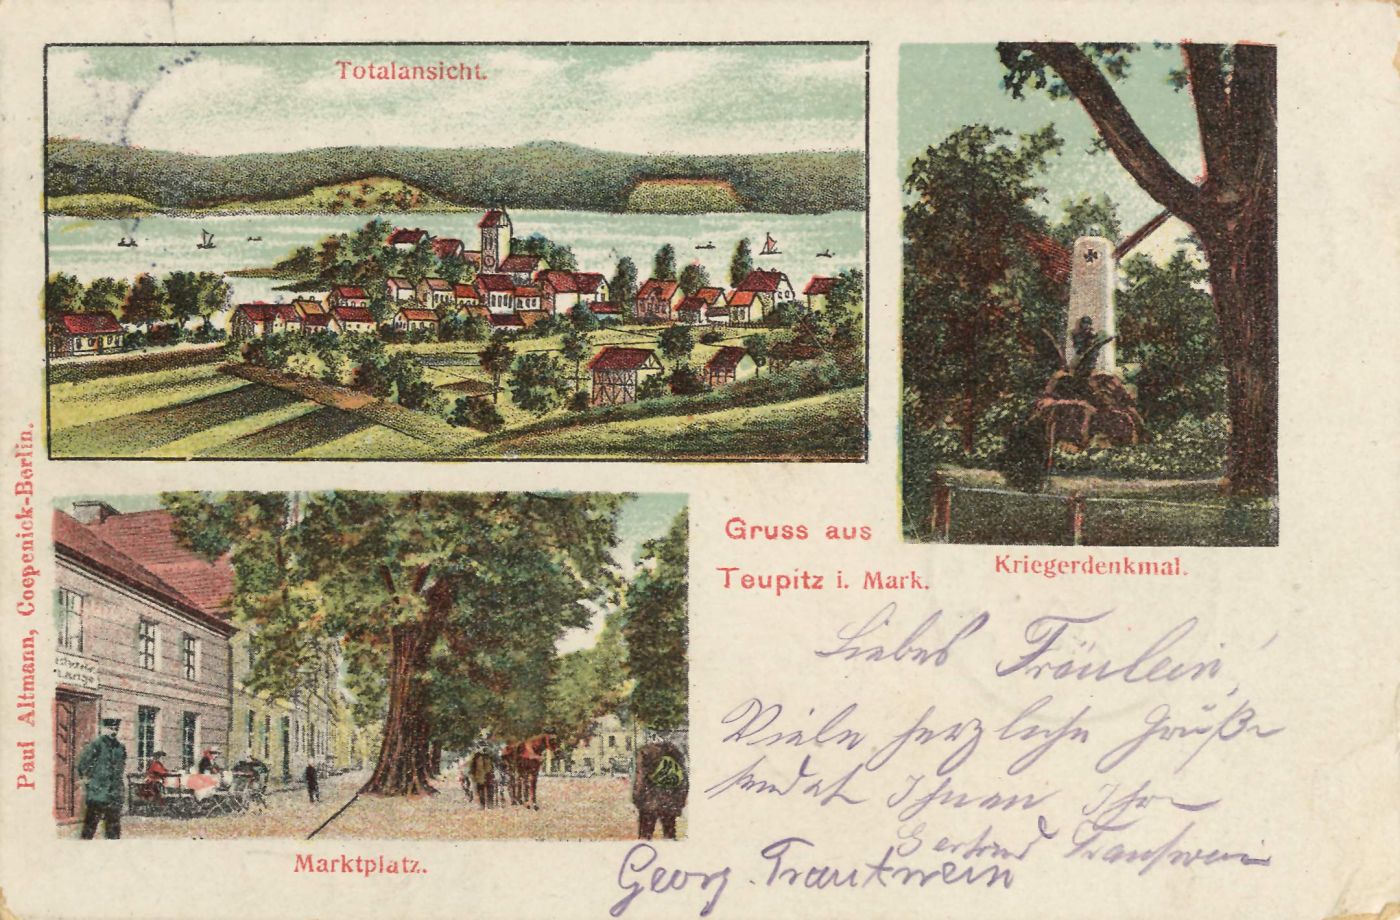 Totalansicht.
Paul Altmann, Coepenick-Berlin.
Gruss aus
Teupitz i. Mark.
Kriegerdenkmal.
Marktplatz.
Liebes Fräulein!
Viele herzliche Grüße
sendet Ihnen Ihre
Gertrud Trautwein
Georg Trautwein